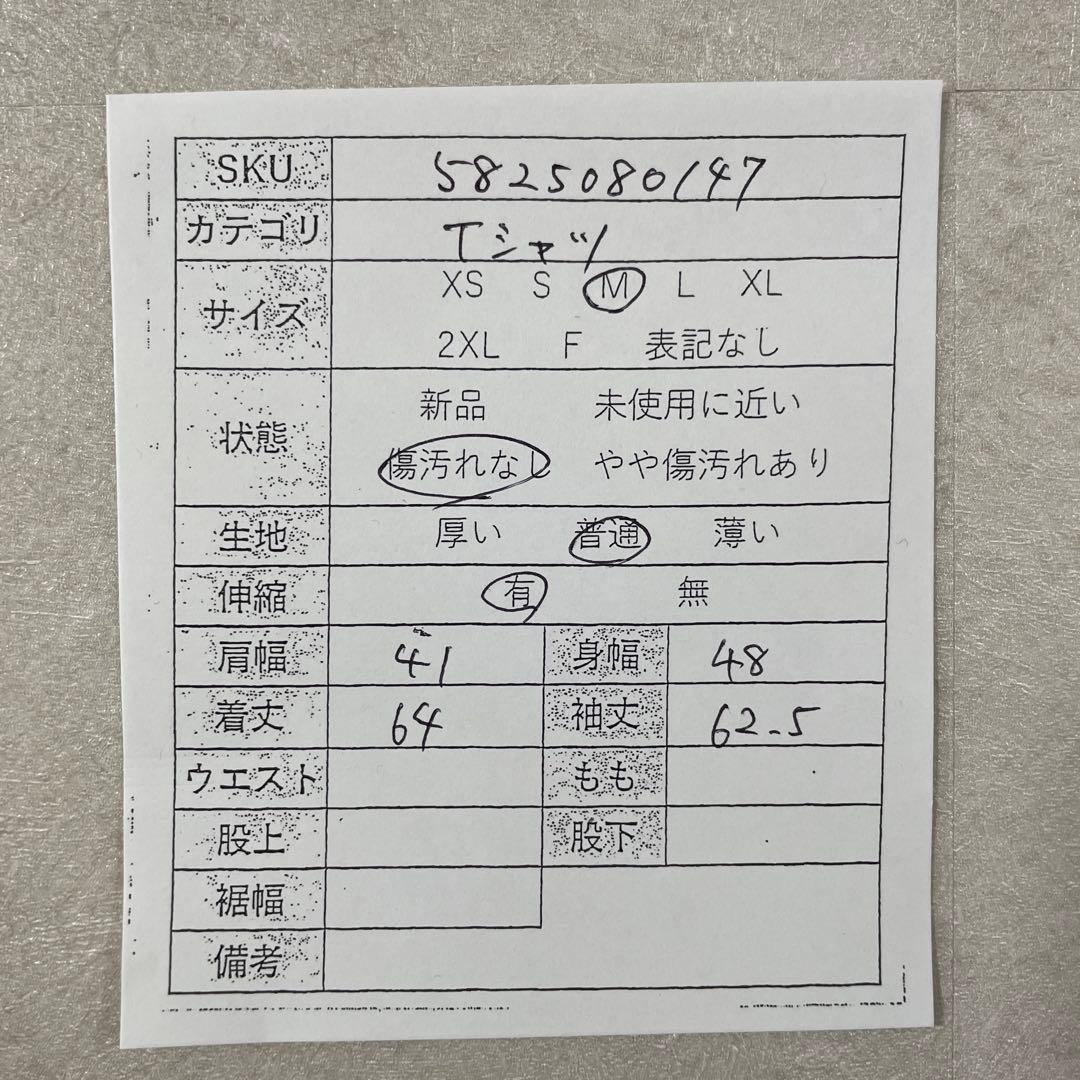 SKU 5825080147
カテゴリ Tシャツ
サイズ XS S M L XL
2XL F 表記なし
状態 新品 未使用に近い
傷汚れなし やや傷汚れあり
生地 厚い 普通 薄い
伸縮 有 無
肩幅 41 身幅 48
着丈 64 袖丈 62.5
ウエスト もも
股上 股下
裾幅
備考